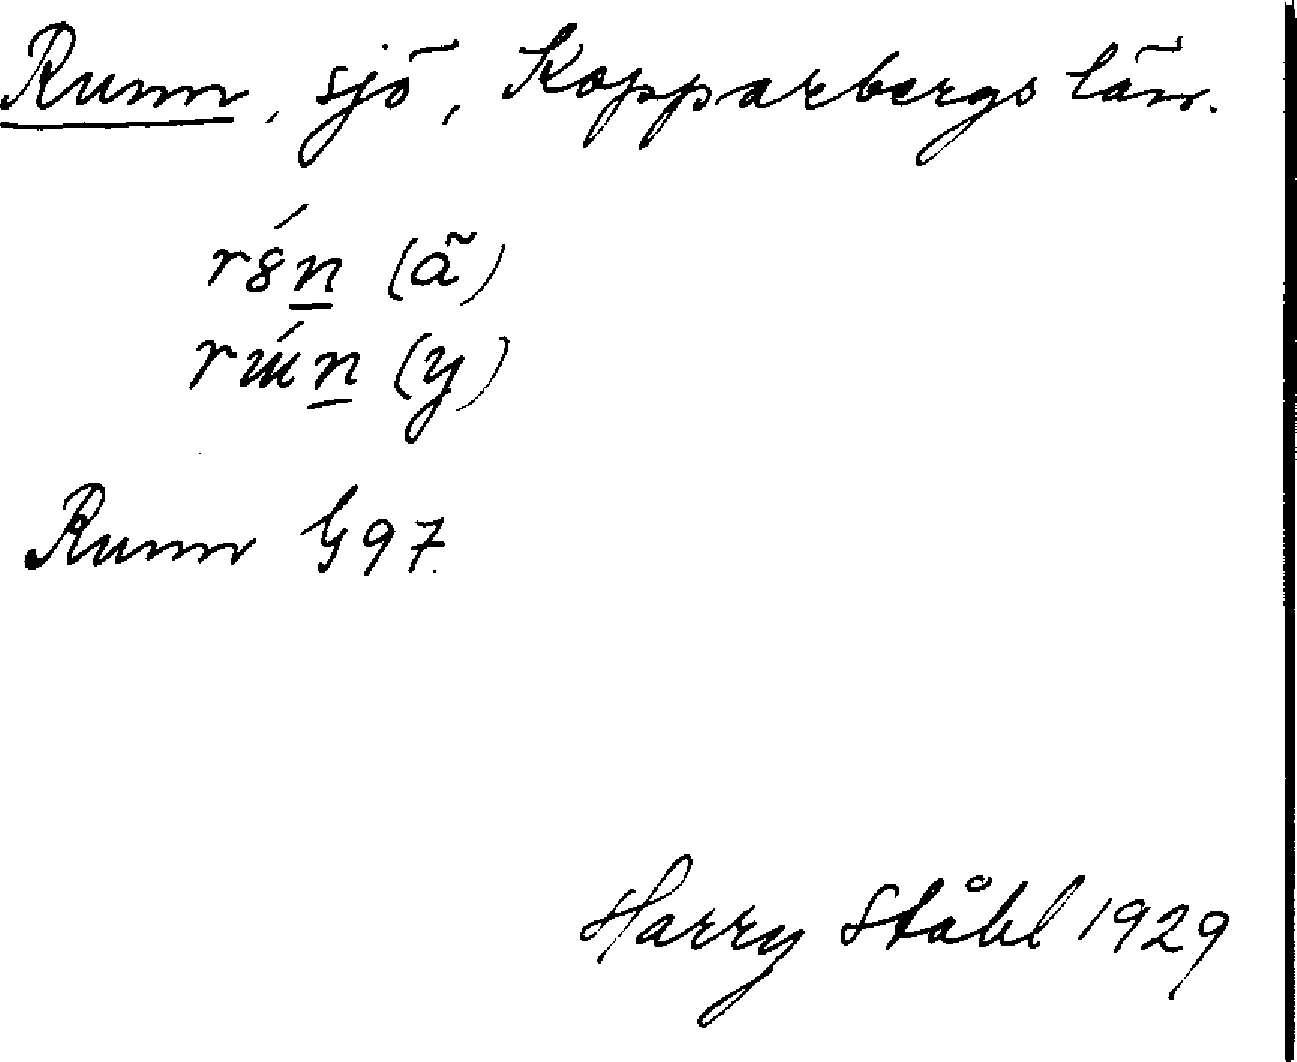 Runn, sjö, Kopparbergs län.
rȣ́n (ä)
rɯ́n (y)
Runn G97.
Harry Ståhl 1929